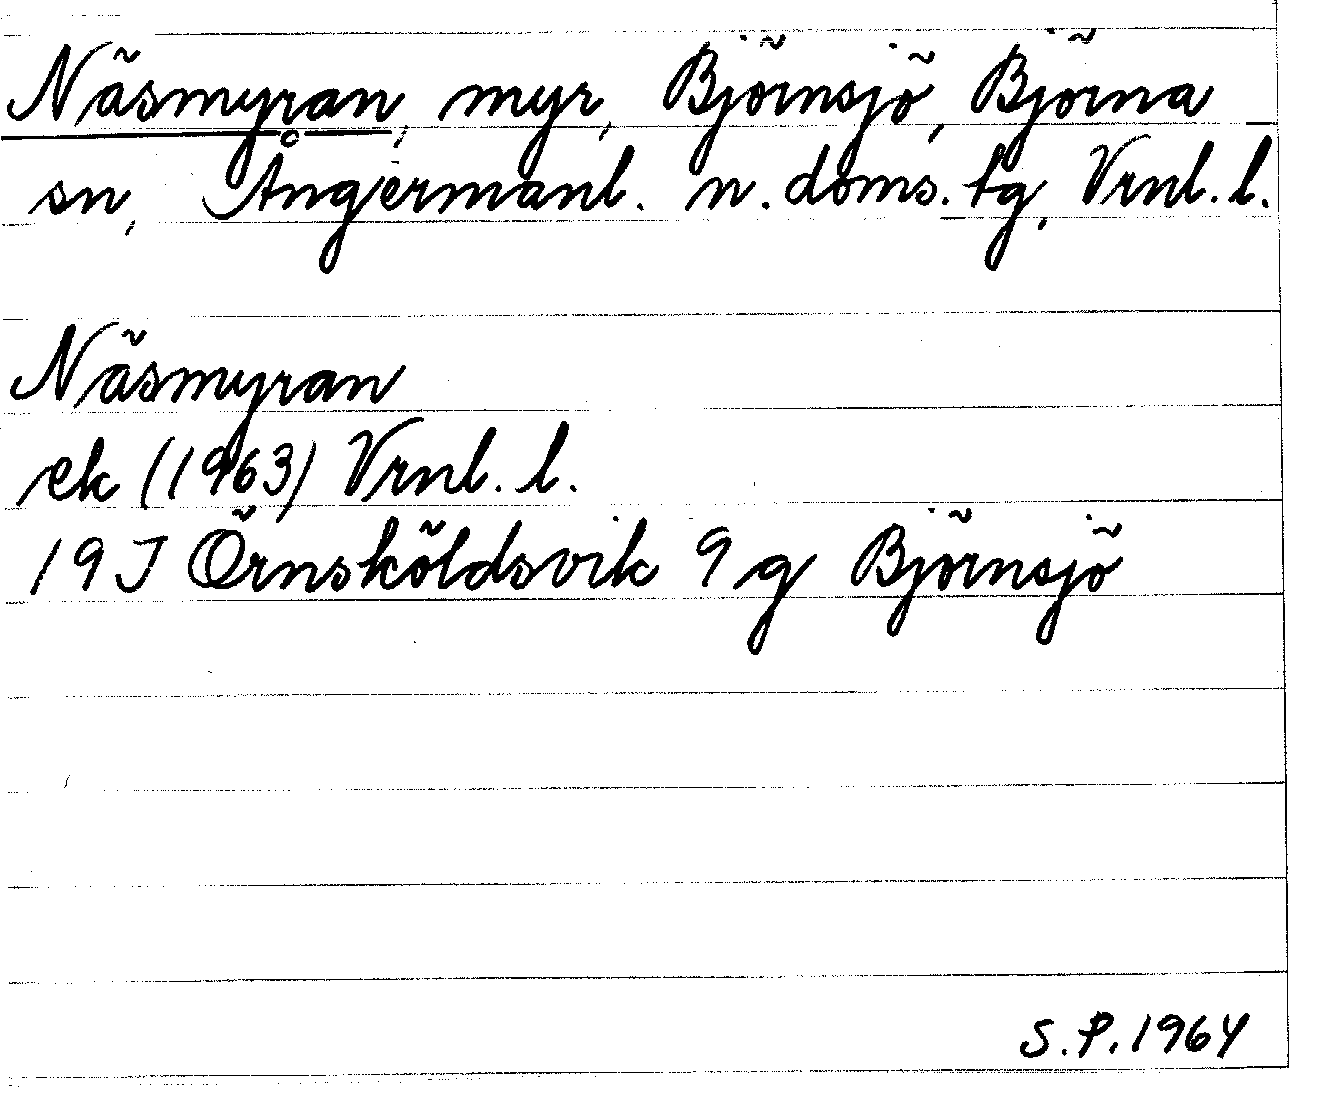 Näsmyran, myr, Björnsjö, Björna
sn, Ångermanl. n. doms. tg, Vrnl. l.
Näsmyran
ek (1963) Vrnl. l.
19 J Örnsköldsvik 9 g Björnsjö
S.P. 1964